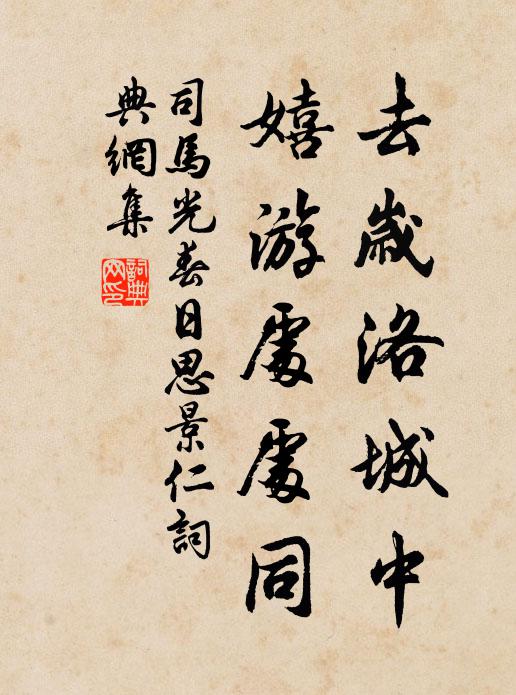 去歲洛城中
嬉游處處同
司馬光春日思景仁詞
典網集
詞典
网印